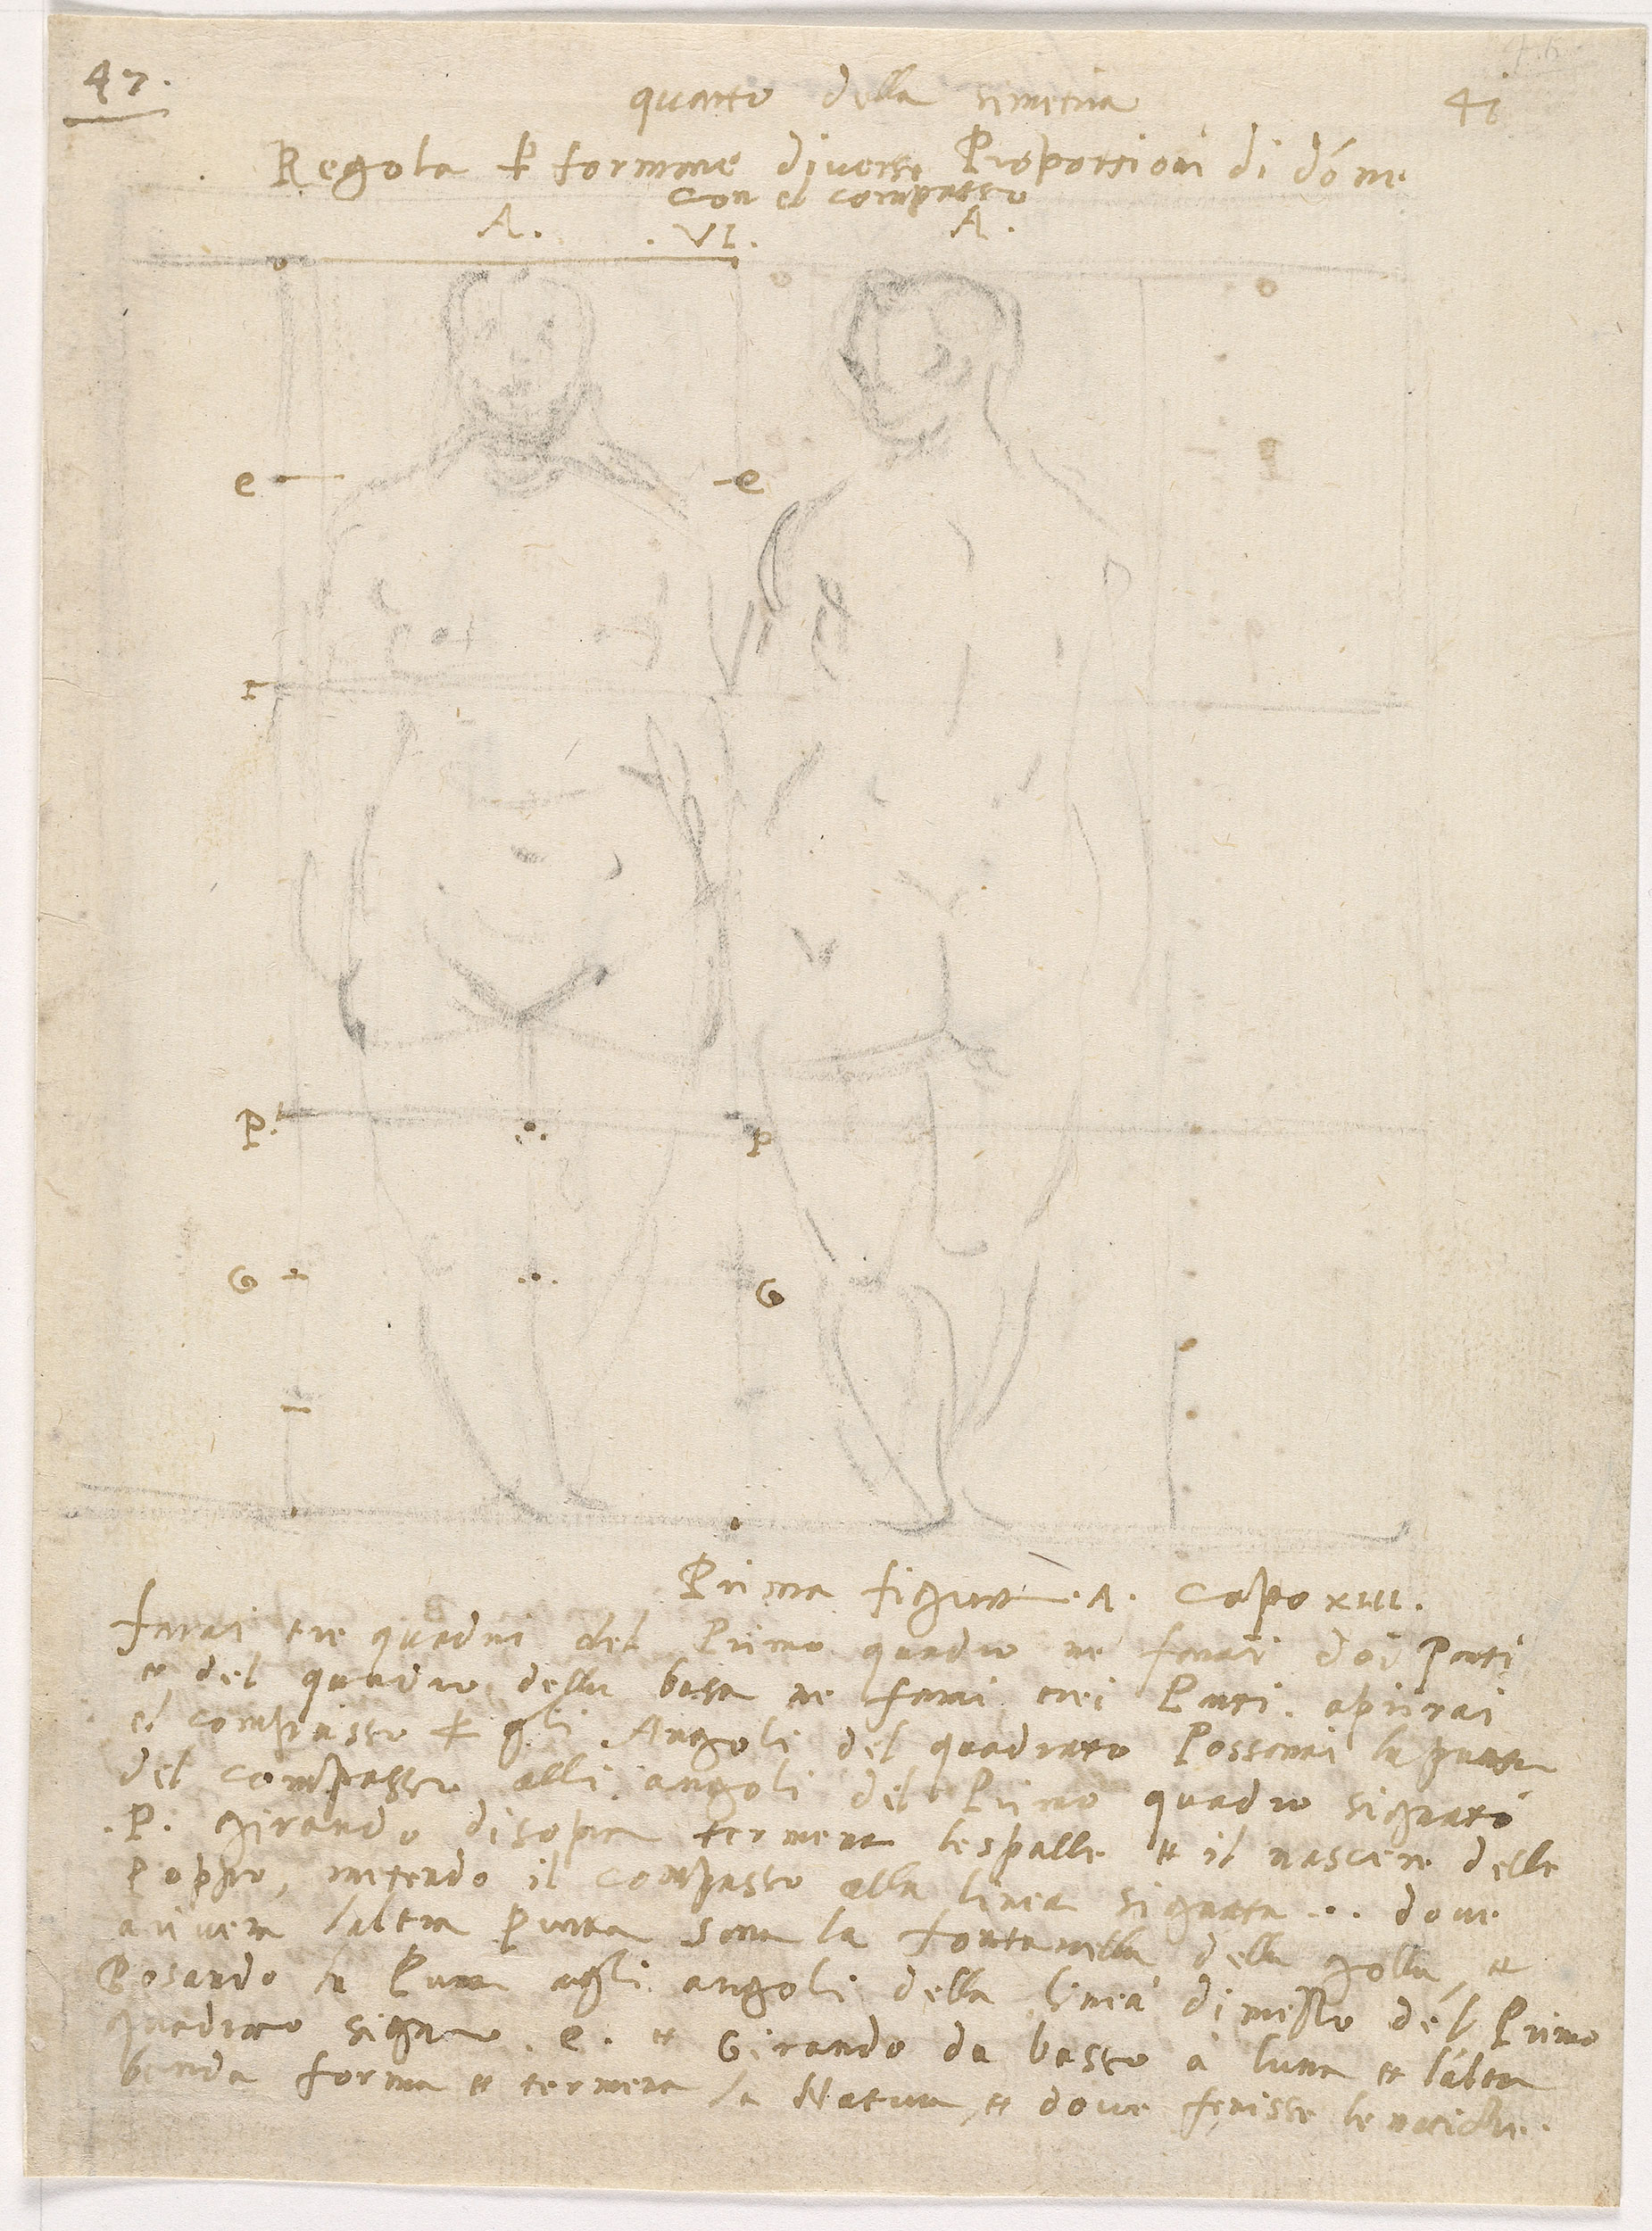 47.
quarto della simetria 41
Regola P formare diverse Proportioni di dóne
con el compasso
A. . VI. A.
e e
r
P. P
G G
Prima figura .A. Capo XIII.
farai tre quadri del Primo quadro ne farai doi Parti
et del quadro della basa ne farai trei Parti. aprirai
el compasso P gli Angoli del quadrato Possarai la punta
del compasso alli angoli del Primo quadro signato
.P. girando disopra termena le spalle et il nascere delle
Poppe, metendo il compasso alla linea signata ... dove
arivera laltra Punta sera la fontanella della golla, et
Posando la Punta agli angoli della linea dimezzo del Primo
quadrato signato .e. et Girando da basso a luna et laltra
banda forma et termena la Natura, et dove fenisse le natiche.